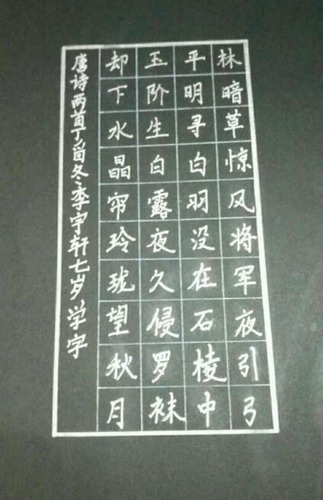 林暗草惊风将军夜引弓
平明寻白羽没在石棱中
玉阶生白露夜久侵罗袜
却下水晶帘玲珑望秋月
唐诗两首丁酉冬李宇轩七岁学字